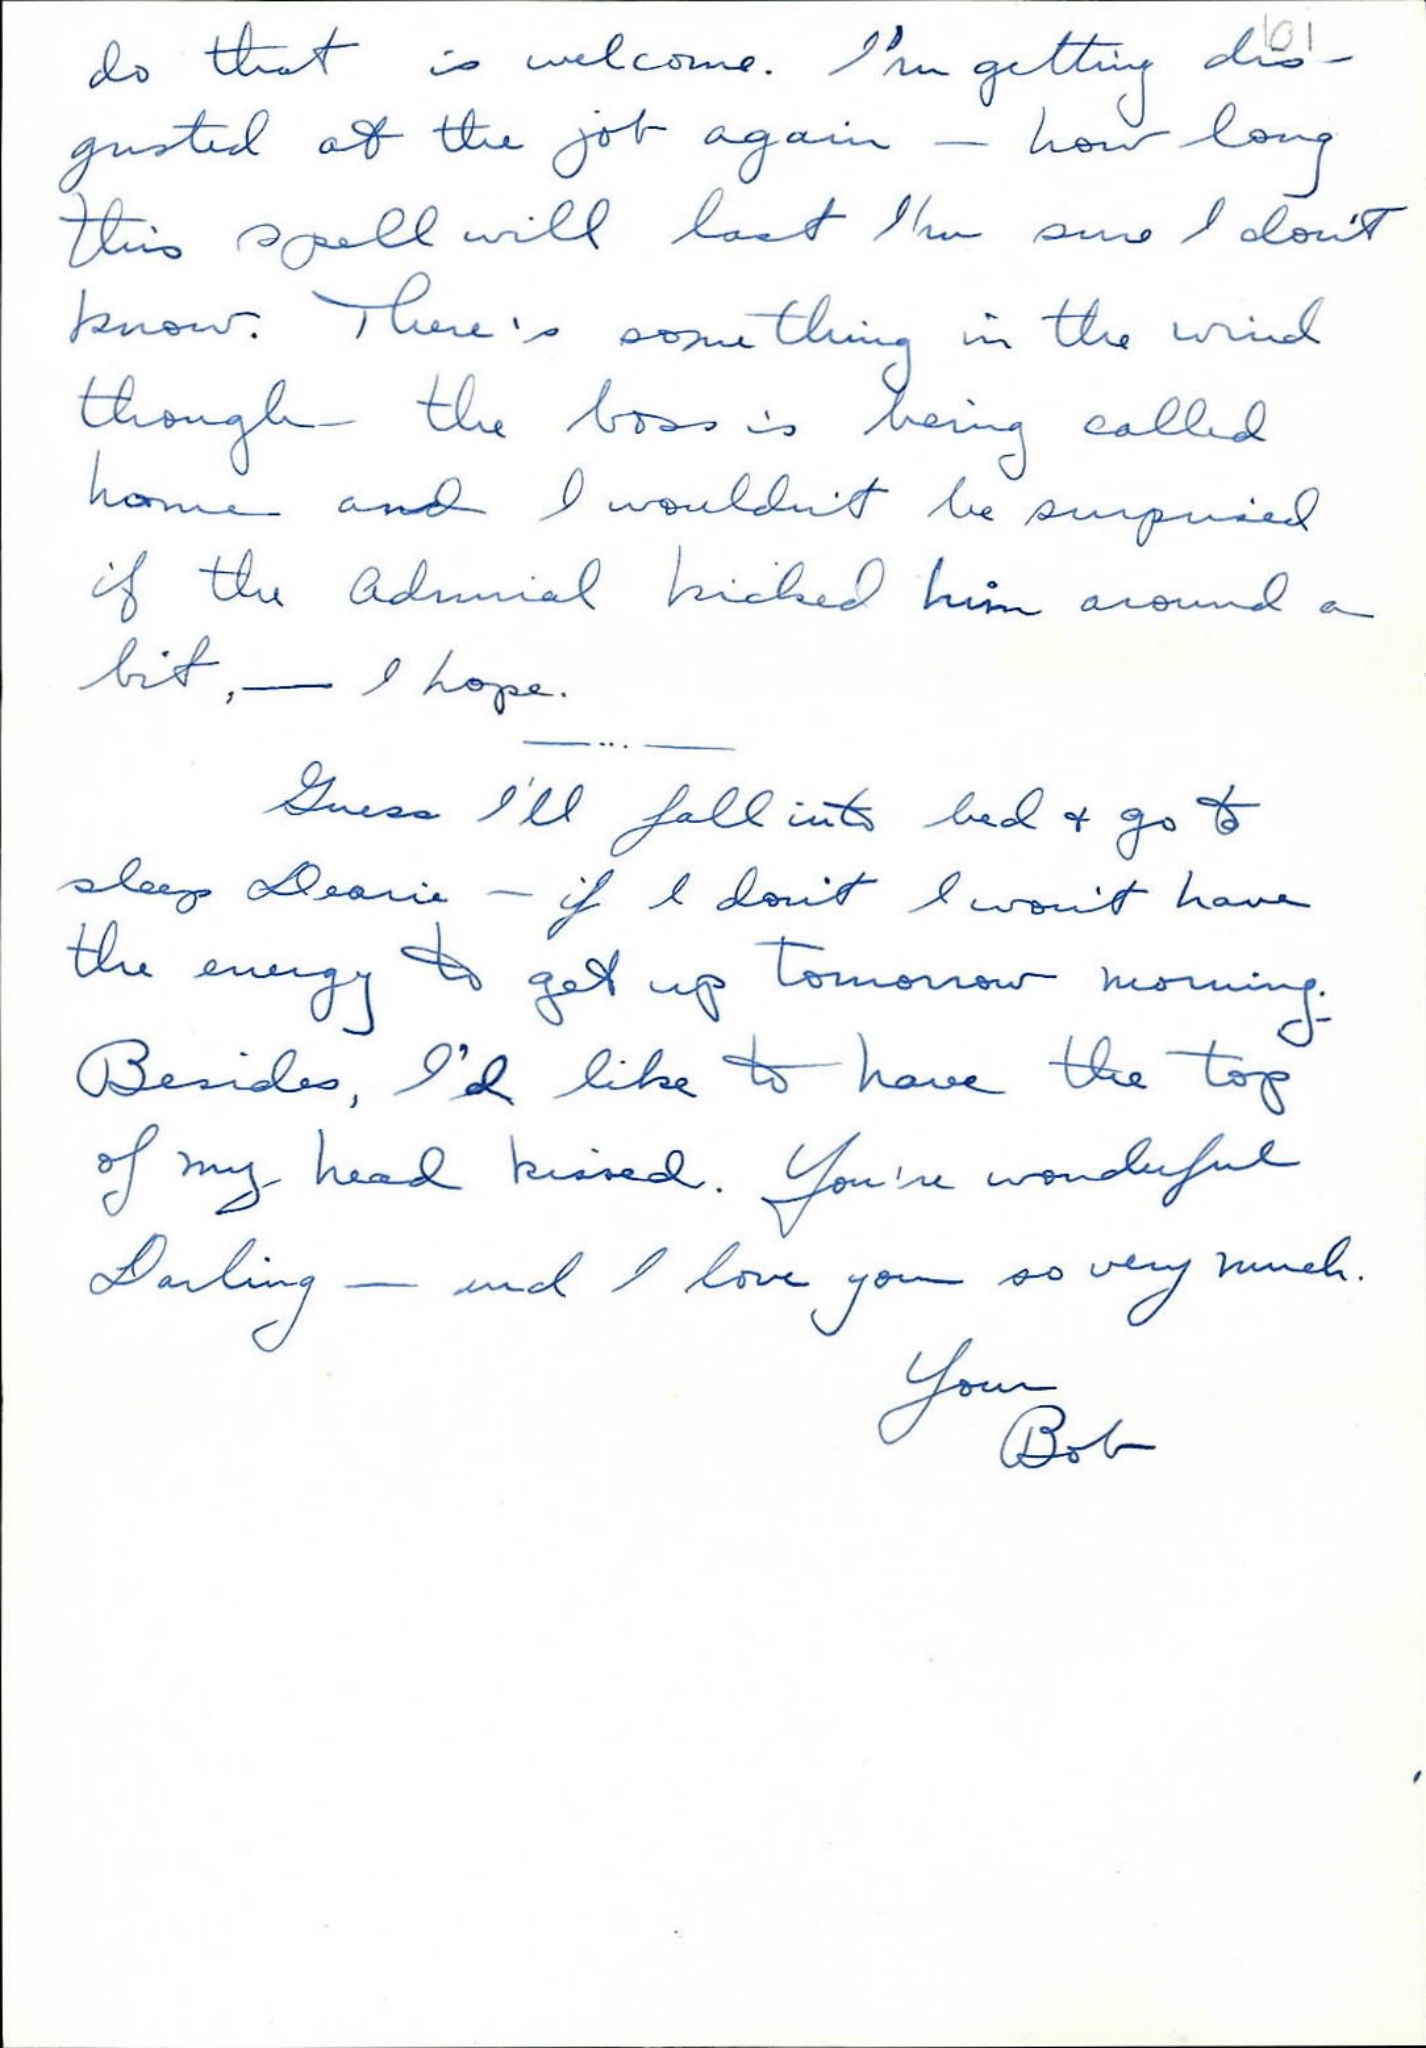 101
do that is welcome. I'm getting dis-
gusted at the job again — how long
this spell will last I'm sure I don't
know. There's something in the wind
though — the boss is being called
home and I wouldn't be surprised
if the Admiral kicked him around a
bit, — I hope.
—...—
Guess I'll fall into bed & go to
sleep Dearie — if I don't I won't have
the energy to get up tomorrow morning.
Besides, I'd like to have the top
of my head kissed. You're wonderful
Darling — and I love you so very much.
Your
Bob